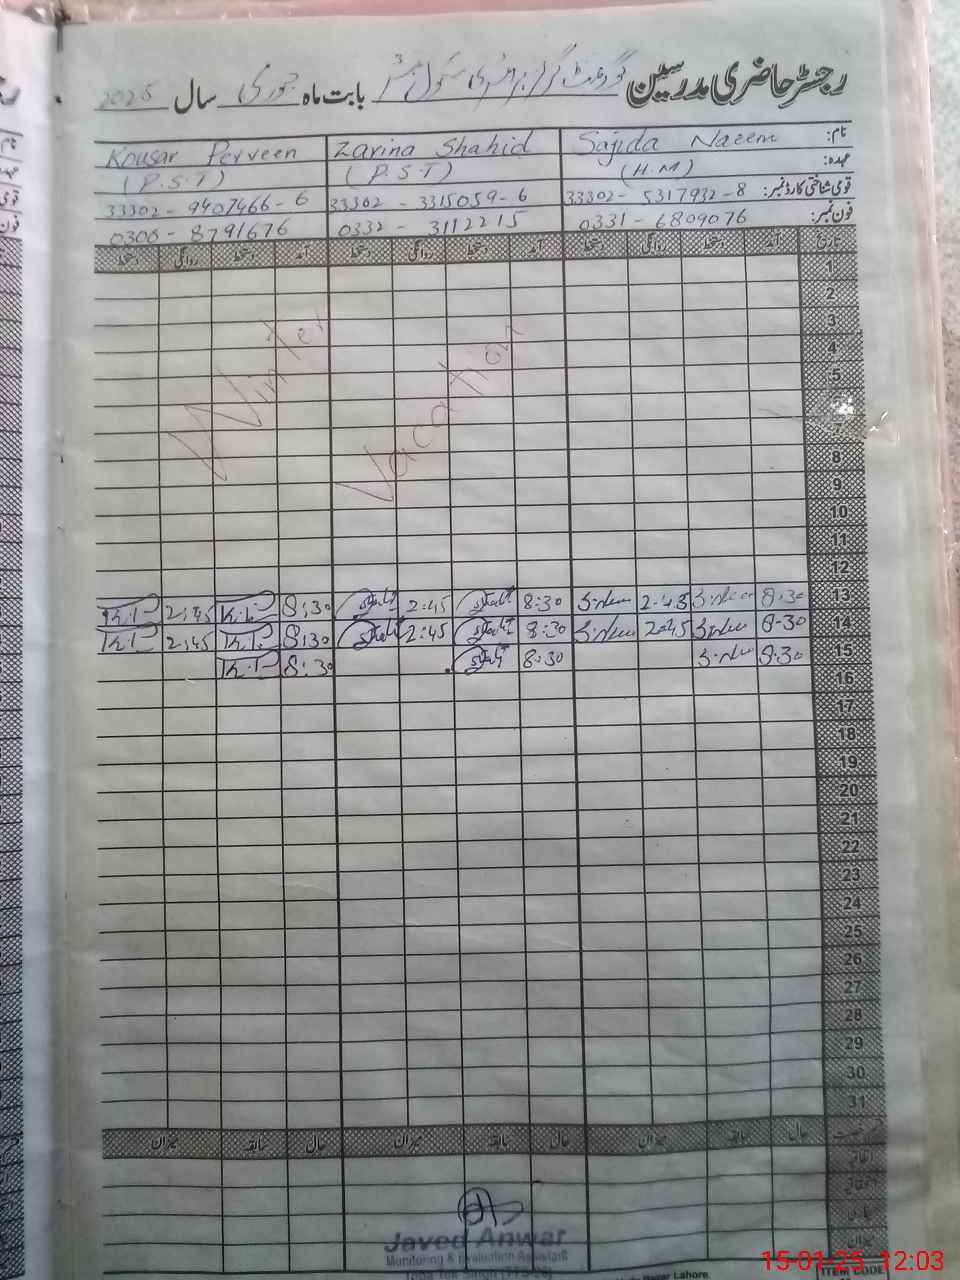 رجسٹر حاضری مدرسین گورنمنٹ گرلز پرائمری سکول بابت ماہ جنوری سال 2025
نام: Sajida Nazem Zarina Shahid Kousar Perveen
عہدہ: (H.M) (P.S.T) (P.S.T)
قومی شناختی کارڈ نمبر: 33302-5317932-8 33302-3315059-6 33302-9407466-6
فون نمبر: 0331-6809076 0332-3112215 0306-8791676
تاریخ آمد دستخط روانگی دستخط آمد دستخط روانگی دستخط آمد دستخط روانگی دستخط
1
2
3
4
5
7
8
9
10
11
12
Winter Vacation
13 8-30 2-45 8:30 2:45 8:30 K.P 2:45 K.P
14 8-30 2-45 8:30 2:45 8:30 K.P 2:45 K.P
15 8-30 8:30 8:30 K.P
16
17
18
19
20
21
22
23
24
25
26
27
28
29
30
31
حال سابقہ میزان حال سابقہ میزان حال سابقہ میزان
Javed Anwar
Monitoring & Evaluation Assistant
Toba Tek Singh
Bazar Lahore.
ITEM CODE
15-01-25 12:03